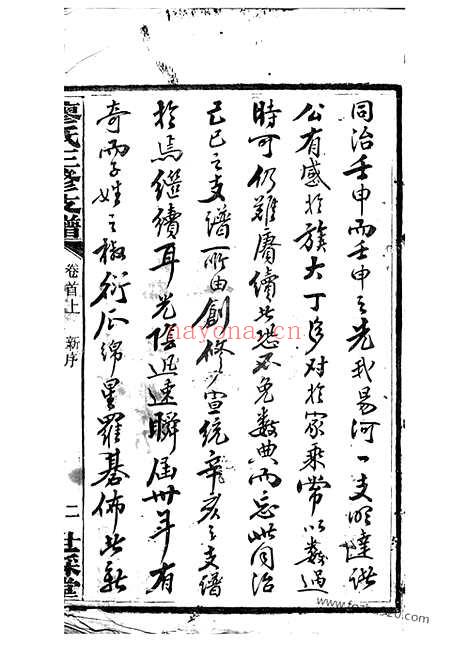 同治壬申而壬申之先我易河一支明達諸
公有感於族大丁多對於家乘常以數過
時可仍難賡續此恐不免數典而忘此同治
己巳之支譜所由創修宣統辛亥之支譜
於焉繼續耳光陰迅速瞬屆卅年有
奇而子姓之椒衍瓜綿星羅碁佈此新
廖氏三修支譜
卷首上
新序
二
nayona.cn